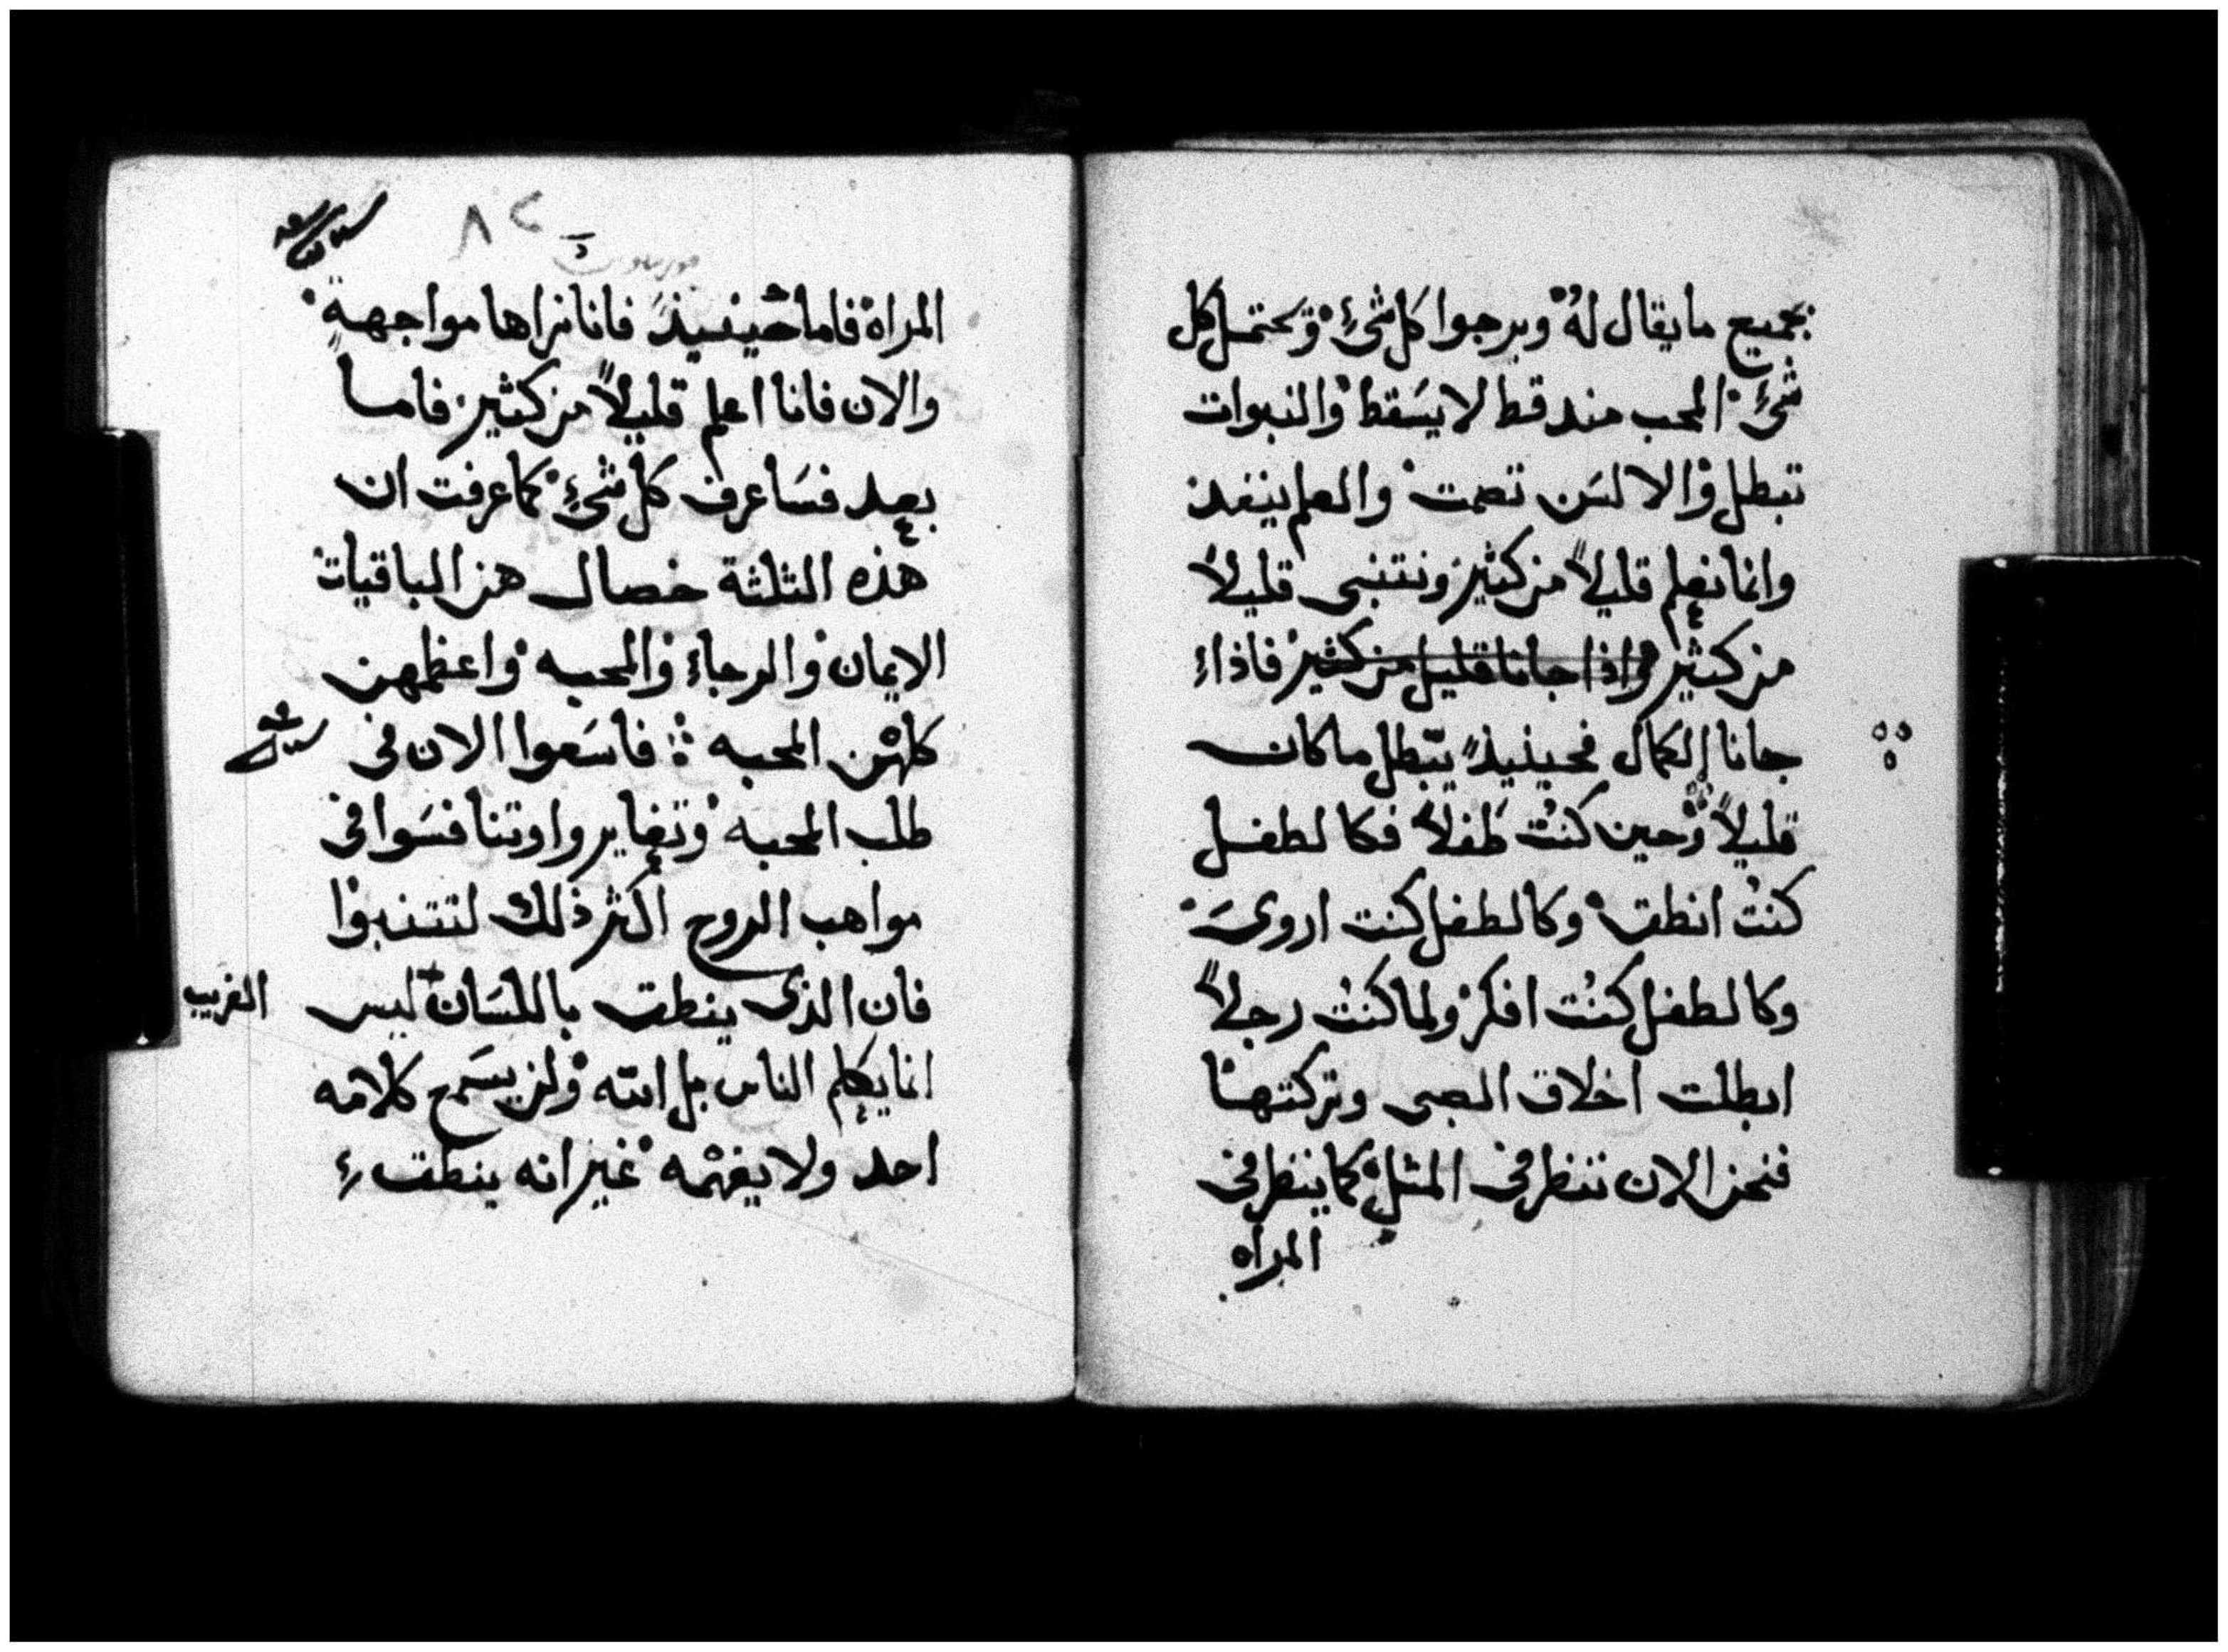 بجميع ما يقال له ويرجوا كل شيء ويحتمل كل
شيء المحب منذ قط لا يسقط والنبوات
تبطل والالسن تصمت والعلم ينفد
وانما نعلم قليلاً من كثير ونتنبى قليلاً
من كثير واذا جانا قليل من كثير فاذا
جانا الكمال فحينيذ يبطل ما كان
قليلاً وحين كنت طفلاً فكالطفل
كنت انطق وكالطفل كنت اروى
وكالطفل كنت افكر ولما كنت رجلاً
ابطلت اخلاق الصبى وتركتها
فنحن الان ننظر في المثل كما ينظر في
المراه
٨٢
المراة فاما حينيذ فانا نراها مواجهة
والان فانا اعلم قليلاً من كثير فاما
بعد فساعرف كل شيء كما عرفت ان
هذه الثلثة خصال هن الباقيات
الايمان والرجاء والمحبه واعظمهن
كلهن المحبه فاسعوا الان في
طلب المحبه وتغايروا وتنافسوا في
مواهب الروح اكثر ذلك لتتنبوا
فان الذى ينطق باللسان ليس
الغريب
انما يكلم الناس بل الله ولن يسمع كلامه
احد ولا يفهمه غير انه ينطق